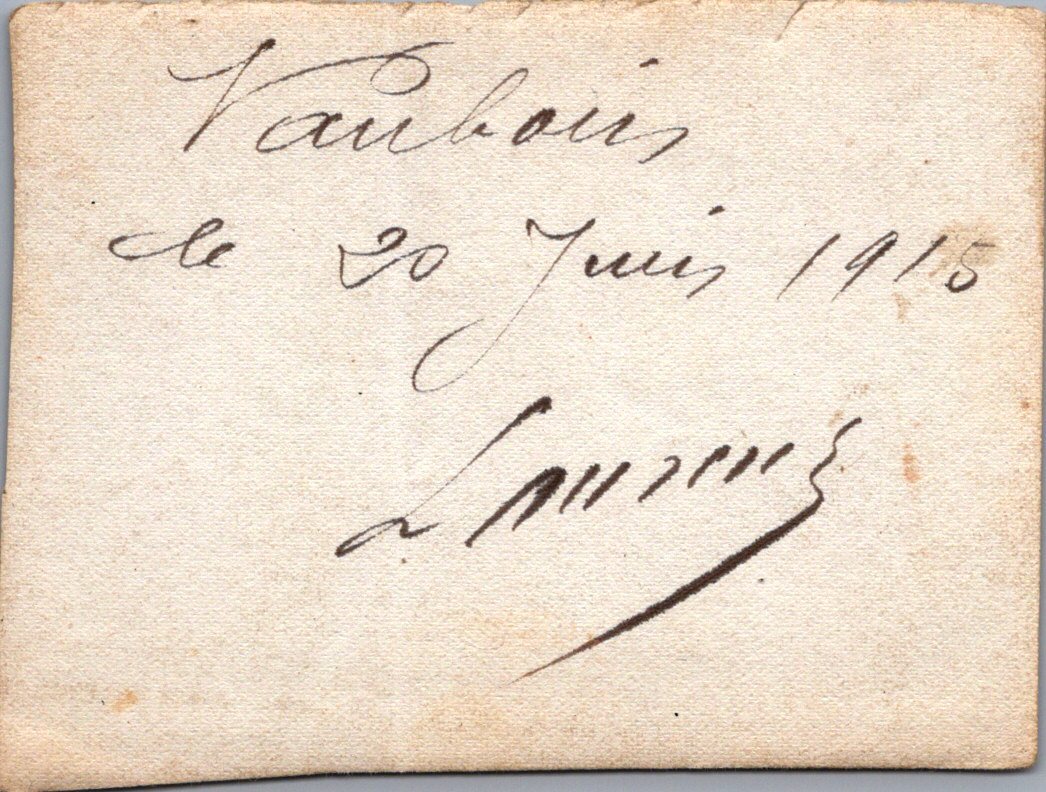 Vaubois
le 20 Juin 1915